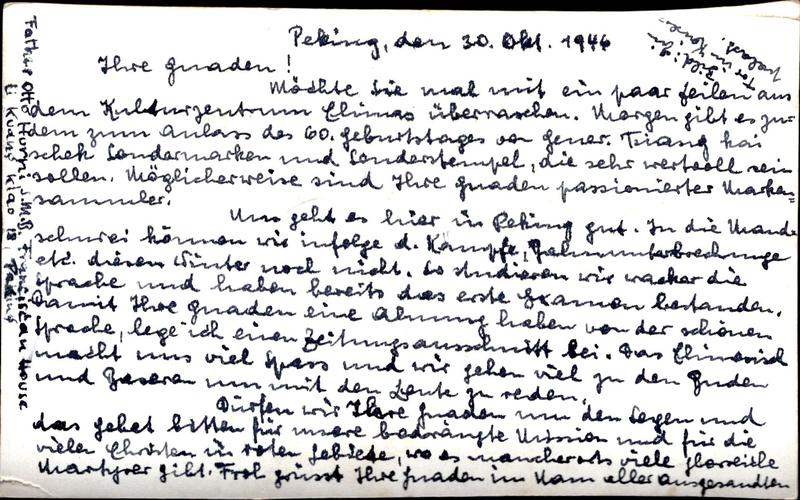 Peking, den 30. Okt. 1946
Ihre Gnaden!
Möchte Sie mal mit ein paar Zeilen aus
dem Kulturzentrum Chinas überraschen. Morgen gibt es zu-
dem zum Anlass des 60. Geburtstages von Gener. Tsiang kai
schek Sondermarken und Sonderstempel, die sehr wertvoll sein
sollen. Möglicherweise sind Ihre Gnaden passionierter Marken=
sammler.
Uns geht es hier in Peking gut. In die Mand-
schurei können wir infolge d. Kämpfe, Bahnunterbrechunge
etc. diesen Winter noch nicht. So studieren wir wacker die
Sprache und haben bereits das erste Examen bestanden.
Damit Ihre Gnaden eine Ahnung haben von der schönen
Sprache, lege ich einen Zeitungsausschnitt bei. Das Chinesisch
macht uns viel Spass und wir gehen viel zu den Buden
und Basaren um mit den Leute zu reden.
Dürfen wir Ihre Gnaden um den Segen und
das Gebet bitten für unsere bedrängte Mission und für die
vielen Christen in roten Gebiete, wo es mancherorts viele glorreiche
Martyrer gibt. Froh grüsst Ihre Gnaden im Nam aller ausgesandten
Father Otto S.M.B. Franciscan House
Li Kuang kiao 18, Peking
Bild: Ein
Tor im Kaiser-
palast.